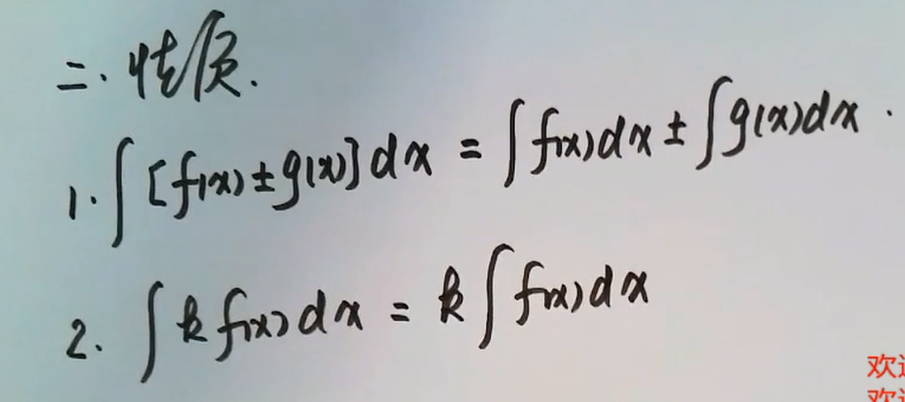 二.性质.
1. ∫[f(x)±g(x)]dx = ∫f(x)dx ± ∫g(x)dx.
2. ∫kf(x)dx = k∫f(x)dx
欢
欢